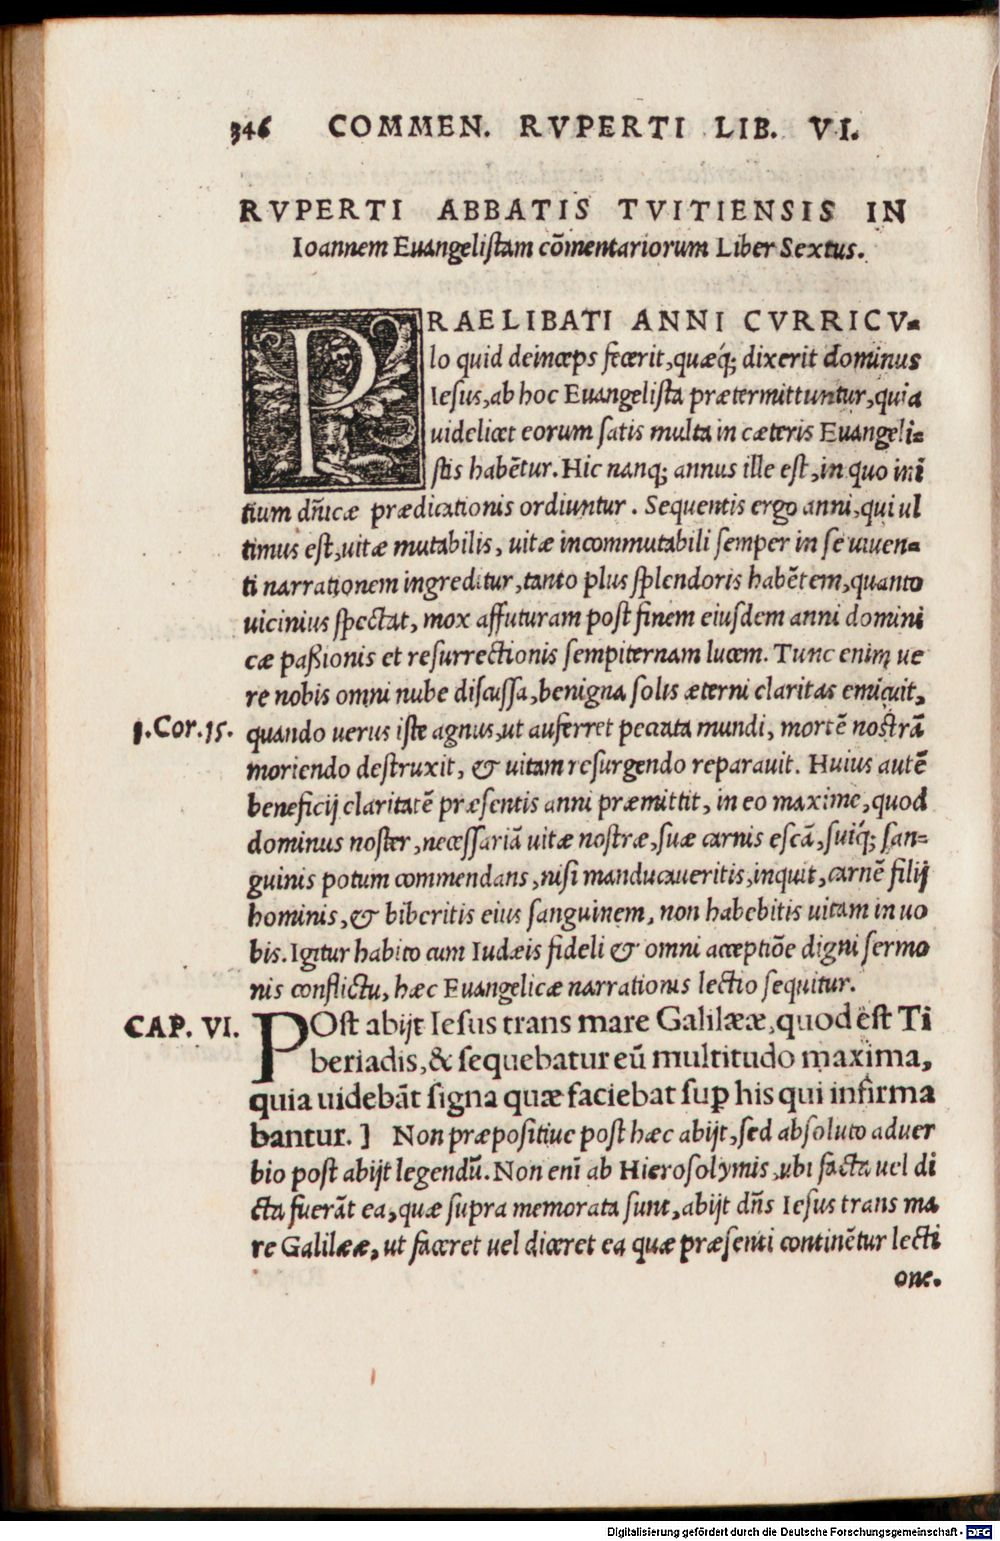 346 COMMEN. RVPERTI LIB. VI.
RVPERTI ABBATIS TVITIENSIS IN
Ioannem Euangelistam cōmentariorum Liber Sextus.
PRAELIBATI ANNI CVRRICV-
lo quid deinceps fecerit, quæq́; dixerit dominus
Iesus, ab hoc Euangelista prætermittuntur, quia
uidelicet eorum satis multa in cæteris Euangeli-
stis habētur. Hic nanq; annus ille est, in quo inī
tium dn̄icæ prædicationis ordiuntur. Sequentis ergo anni, qui ul
timus est, uitæ mutabilis, uitæ incommutabili semper in se uiuen-
ti narrationem ingreditur, tanto plus splendoris habētem, quanto
uicinius spectat, mox affuturam post finem eiusdem anni domini
cæ paßionis et resurrectionis sempiternam lucem. Tunc enim ue
re nobis omni nube discussa, benigna solis æterni claritas emicuit,
1.Cor.15. quando uerus iste agnus, ut auferret peccata mundi, mortē nostrā
moriendo destruxit, & uitam resurgendo reparauit. Huius autē
beneficij claritatē præsentis anni præmittit, in eo maxime, quod
dominus noster, necessariā uitæ nostræ, suæ carnis escā, suiq́; san-
guinis potum commendans, nisi manducaueritis, inquit, carnē filij
hominis, & biberitis eius sanguinem, non habebitis uitam in uo
bis. Igitur habito cum Iudæis fideli & omni acceptiōe digni sermo
nis conflictu, hæc Euangelicæ narrationis lectio sequitur.
CAP. VI. POst abijt Iesus trans mare Galilææ, quod est Ti
beriadis, & sequebatur eū multitudo maxima,
quia uidebāt signa quæ faciebat sup̱ his qui infirma
bantur. ] Non præpositiue post hæc abijt, sed absoluto aduer
bio post abijt legendū. Non enī ab Hierosolymis, ubi facta uel di
cta fuerāt ea, quæ supra memorata sunt, abijt dn̄s Iesus trans ma
re Galilææ, ut faceret uel diceret ea quæ præsenti continētur lecti
one.
Digitalisierung gefördert durch die Deutsche Forschungsgemeinschaft - DFG